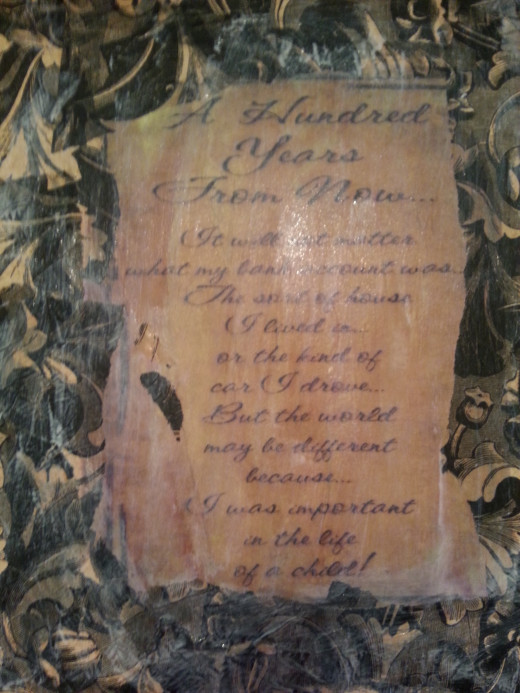 A Hundred
Years
From Now...
It will not matter
what my bank account was...
The sort of house
I lived in...
or the kind of
car I drove...
But the world
may be different
because...
I was important
in the life
of a child!